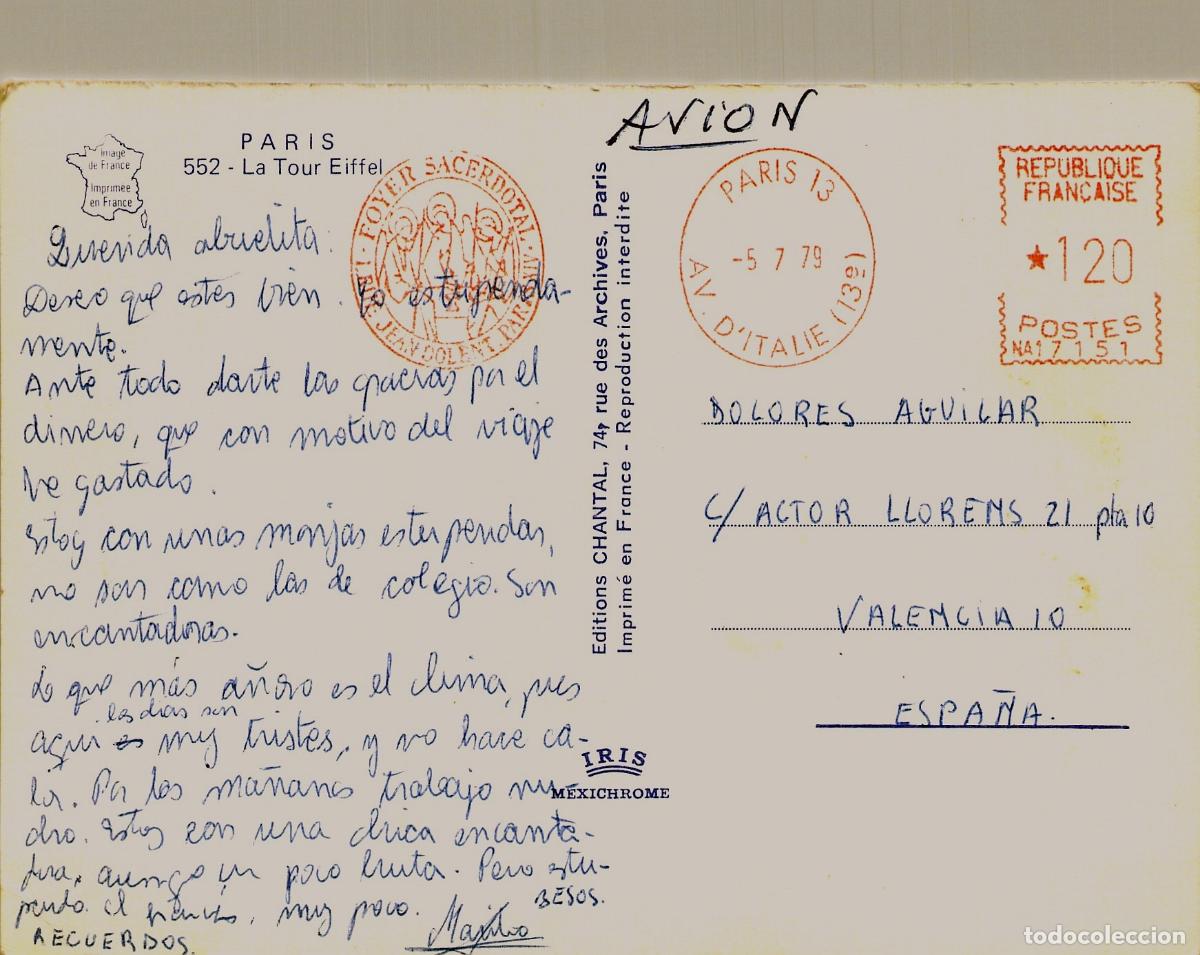 AVION
PARIS
552 - La Tour Eiffel
Image
de France
Imprimée
en France
FOYER SACERDOTAL
1 RUE JEAN DOLENT. PARIS
PARIS 13
-5 7 79
AV. D'ITALIE (13e)
REPUBLIQUE
FRANÇAISE
★120
POSTES
NA17151
Querida abuelita:
Deseo que estes bien. Yo estupenda-
mente.
Ante todo darte las gracias por el
dinero, que con motivo del viaje
he gastado.
Estoy con unas monjas estupendas,
no son como las de colegio. Son
encantadoras.
Lo que más añoro es el clima, pues
los dias son
aquí es muy tristes, y no hace ca-
lor. Por las mañanas trabajo mu-
cho. Estoy con una chica encanta-
dora, aunque un poco bruta. Pero estu-
penda. el francés, muy poco.
BESOS.
RECUERDOS.
Editions CHANTAL, 74, rue des Archives, Paris
Imprimé en France - Reproduction interdite
IRIS
MEXICHROME
DOLORES AGUILAR
C/ ACTOR LLORENS 21 pta 10
VALENCIA 10
ESPAÑA.
todocoleccion